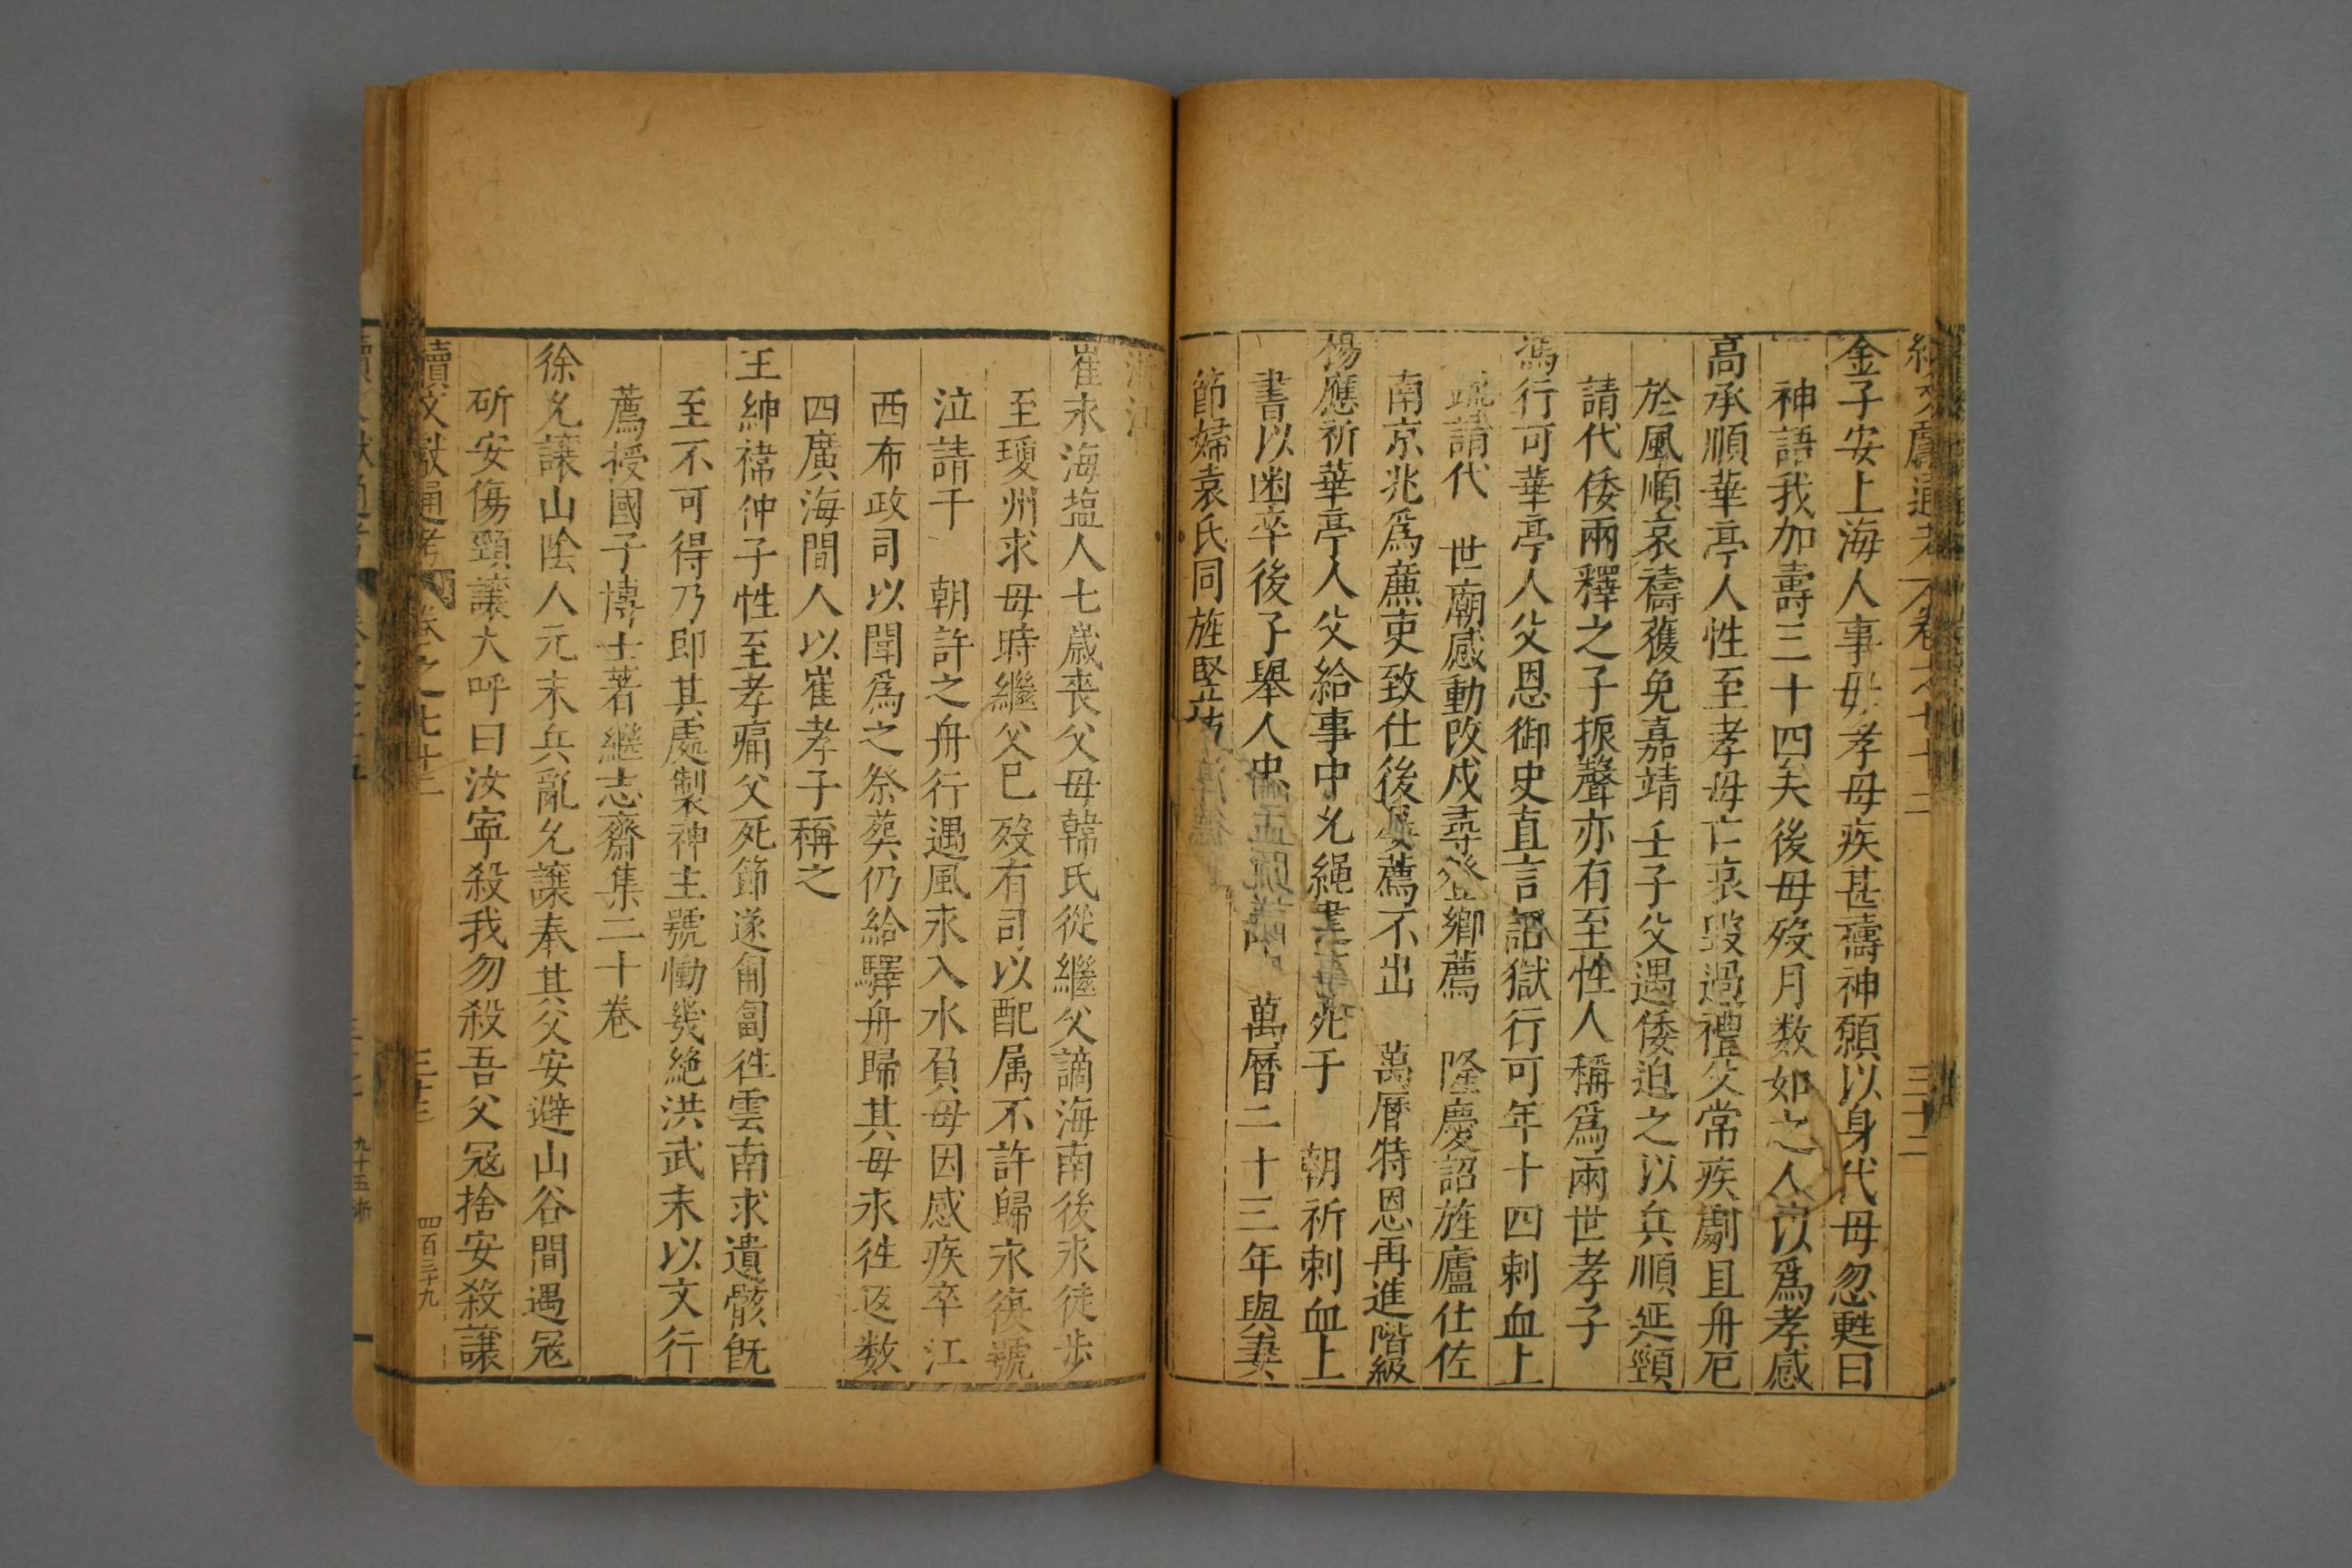 續文獻通考 卷之七十二 三十二
金子安上海人事母孝母疾甚禱神願以身代母忽甦曰
神語我加壽三十四矣後母歿月数如之人以爲孝感
高承順華亭人性至孝母亡哀毀過禮父常疾劇且舟戹
於風順哀禱獲免嘉靖壬子父遇倭迫之以兵順延頸
請代倭兩釋之子振聲亦有至性人稱爲兩世孝子
馮行可華亭人父恩御史直言詔獄行可年十四刺血上
疏請代 世廟感動改戍尋登鄉薦 隆慶詔旌廬仕佐
南京兆爲亷吏致仕後屢薦不出 萬曆特恩再進階級
楊應祈華亭人父給事中允繩 死于 朝祈刺血上
書以凼卒後子舉人忠 萬曆二十三年與妻
節婦袁氏同旌竪坊
浙江
崔永海塩人七歲喪父母韓氏從繼父謫海南後永徒步
至瓊州求母時繼父已歿有司以配属不許歸永復號
泣請于 朝許之舟行遇風永入水負母因感疾卒江
西布政司以聞爲之祭葬仍給驛舟歸其母永徃返数
四廣海間人以崔孝子稱之
王紳禕仲子性至孝痛父死節遂匍匐徃雲南求遺骸旣
至不可得乃即其處製神主號慟幾絶洪武末以文行
薦授國子博士著繼志齋集二十卷
徐允讓山陰人元末兵亂允讓奉其父安避山谷間遇冦
斫安傷頸讓大呼曰汝寧殺我勿殺吾父冦捨安殺讓
續文獻通考 卷之七十二 三十三 四百三十九
九十五 浙